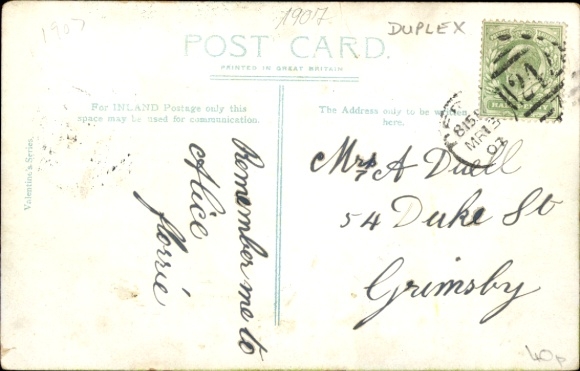 1907
1907
DUPLEX
POST CARD.
PRINTED IN GREAT BRITAIN
For INLAND Postage only this
space may be used for communication.
The Address only to be written
here.
Valentine's Series.
Remember me to
Alice
Florrie
Mrs A Duell
54 Duke St
Grimsby
815
MR 13
07
124
HALFPENNY
40p